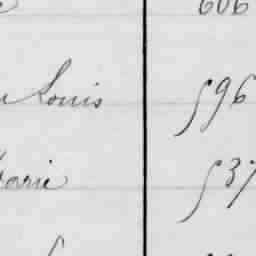 606
Louis 596
Marie 537